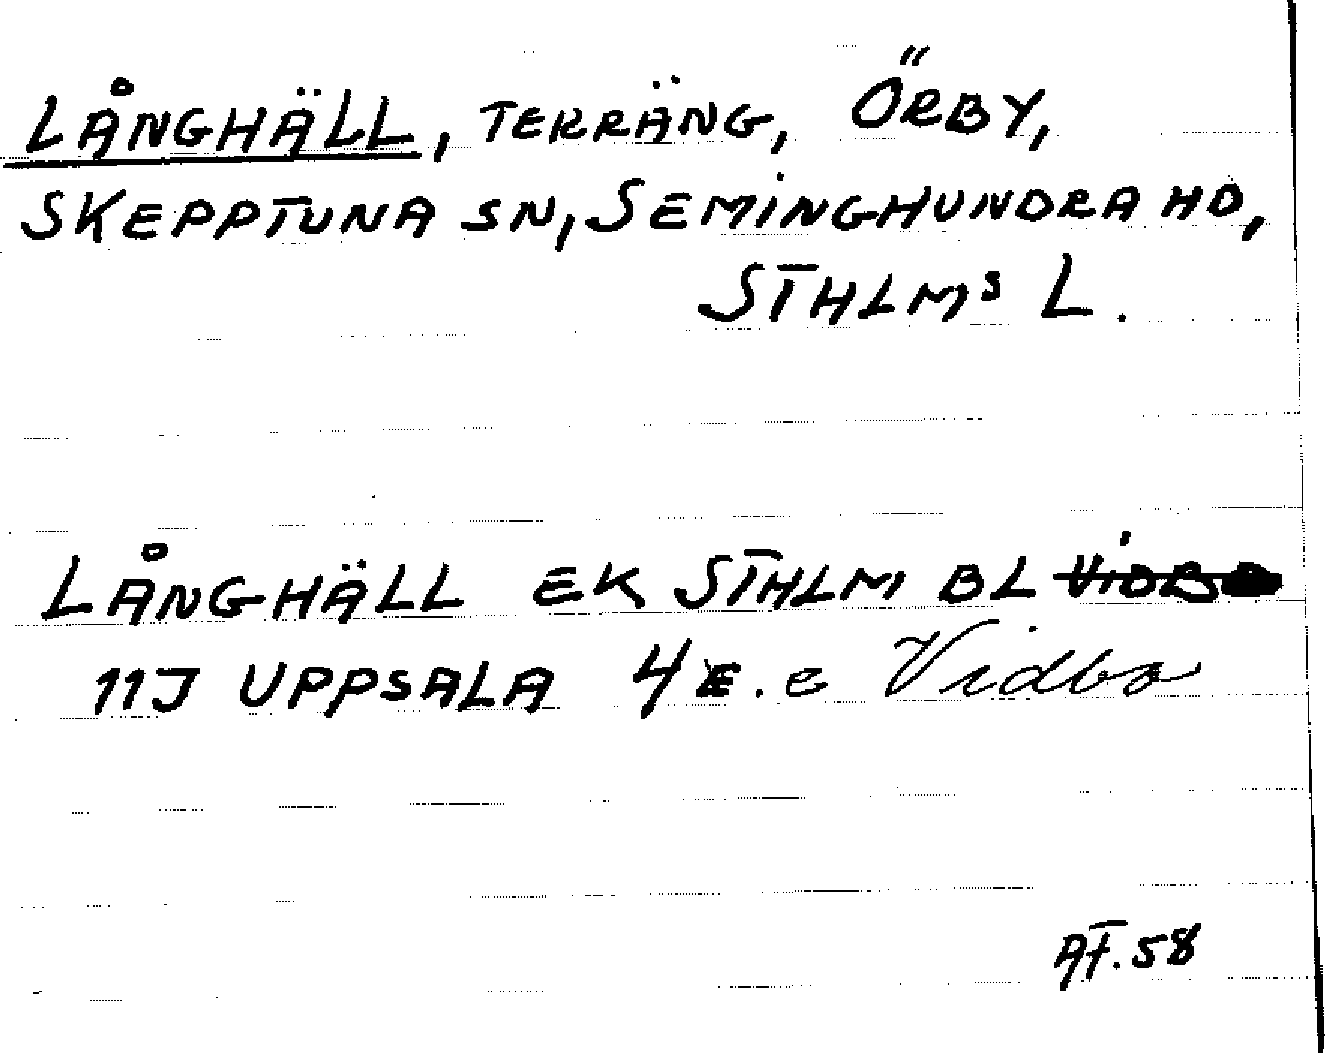 LÅNGHÄLL, TERRÄNG, ÖRBY,
SKEPPTUNA SN, SEMINGHUNDRA HD,
STHLMS L.
LÅNGHÄLL EK STHLM BL VIDBO
11J UPPSALA 4E.e Vidbo
AF.58